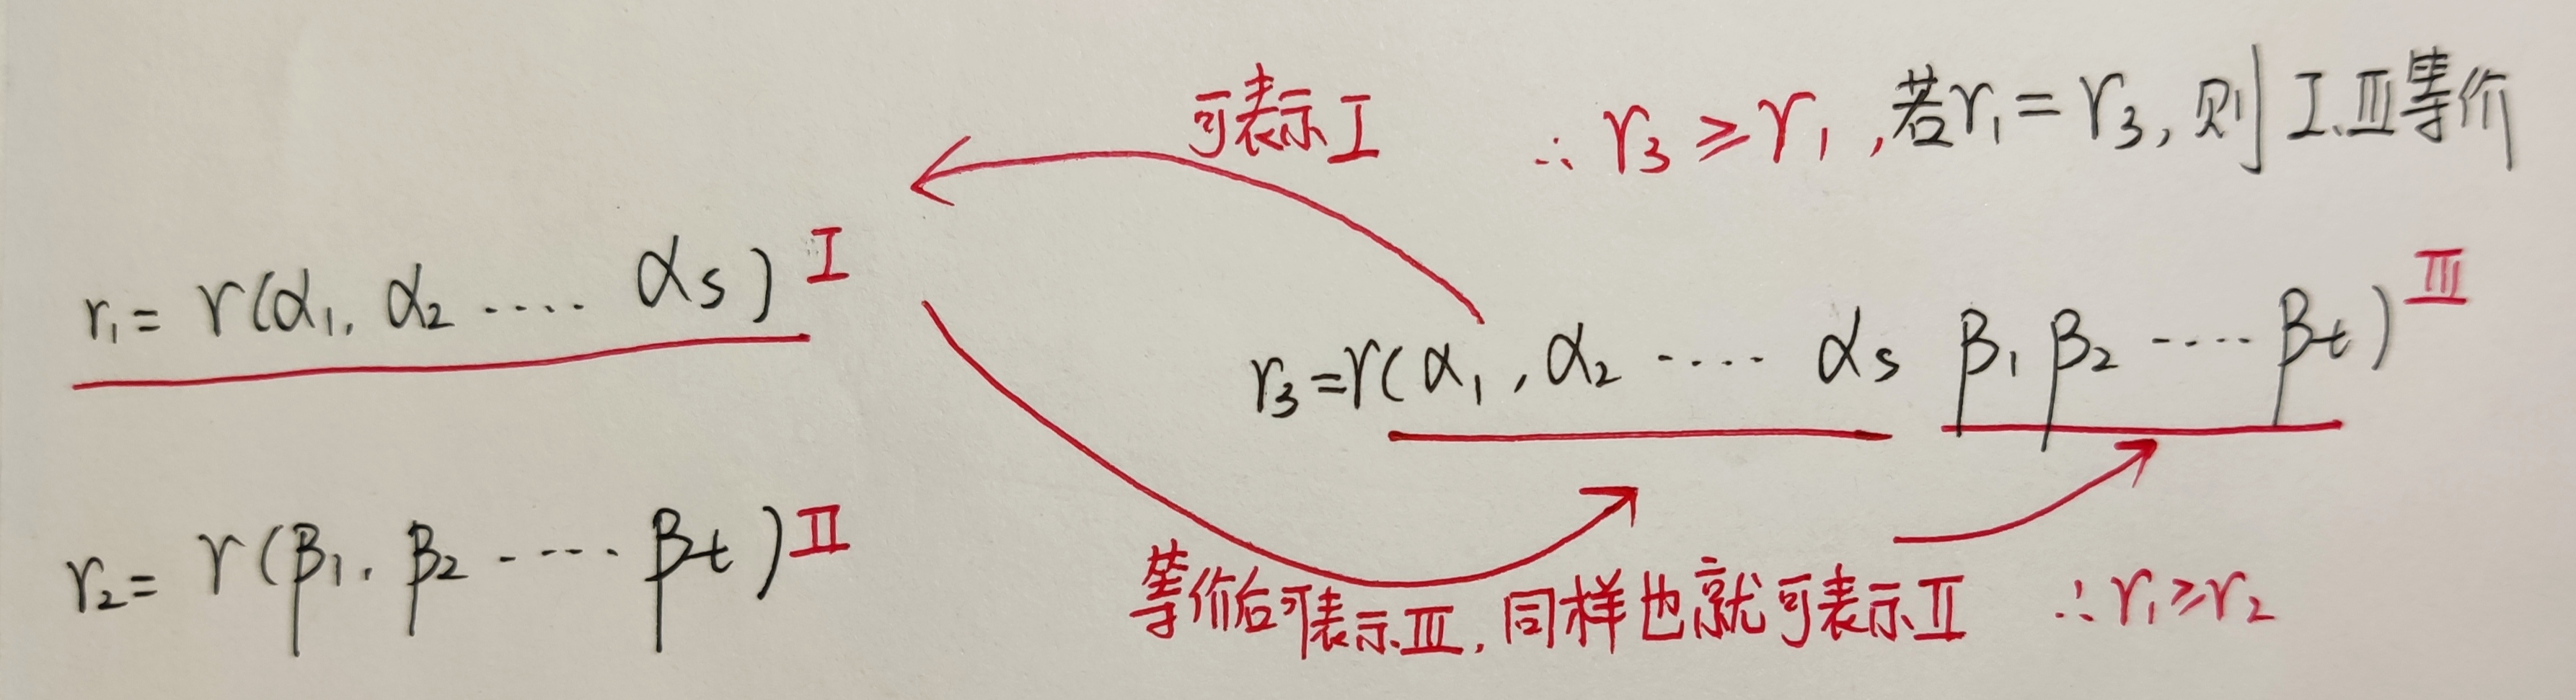 可表示Ⅰ ∴ r₃ ≥ r₁ ,若r₁ = r₃, 则Ⅰ、Ⅲ等价
r₁ = r(α₁, α₂ ..... αs) Ⅰ
r₃ =r(α₁, α₂ ..... αs β₁ β₂ ..... βt) Ⅲ
r₂ = r(β₁, β₂ ..... βt) Ⅱ
等价后可表示Ⅲ, 同样也就可表示Ⅱ ∴ r₁ ≥ r₂